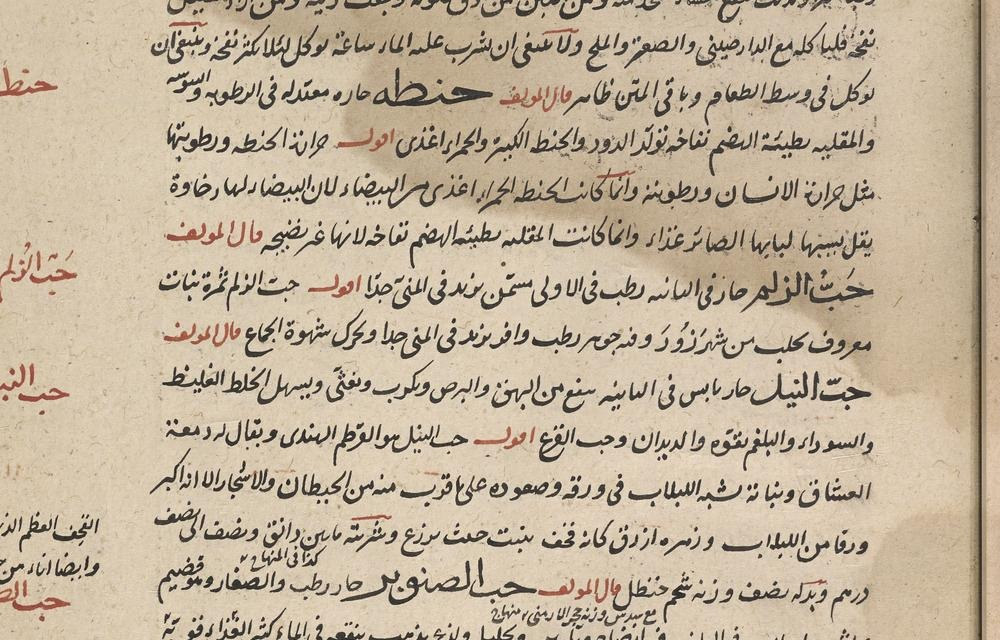 نفخه فليأكله مع الدارصيني والصعتر والملح ولا ينبغي ان يشرب عليه الماء ساعة يوكل لئلا يكثر نفخه وينبغي ان
يوكل في وسط الطعام وباقي المتن ظاهر قال المولف حنطه حاره معتدله في الرطوبه واليبوسه
والمقليه بطيئة الهضم نفاخه تولد الدود والحنطه الكبيره والحمراء اغذى اقول حرارة الحنطه ورطوبتها
مثل حرارة الانسان ورطوبته وانما كانت الحنطه الحمراء اغذى من البيضاء لان البيضاء لها رخاوة
يقل بسببها لبابها الصائر غذاء وانما كانت المقليه بطيئه الهضم نفاخه لانها غير نضيجه قال المولف
حَبّ الزلم حار في الثانيه رطب في الاولى مسمّن يزيد في المني جدا اقول حب الزلم ثمرة نبات
معروف يجلب من شهرَزُورَ وفيه جوهر رطب وافد يزيد في المني جدا ويحرك شهوة الجماع قال المولف
حبّ النيل حار يابس في الثانية ينفع من البهق والبرص ويكرب ويغثّي ويسهل الخلط الغليظ
والسوداء والبلغم بقوّه والديدان وحب القرع اقول حب النيل هو القرطم الهندي ويقال له دمعة
العشاق ونباته يشبه اللبلاب في ورقه وصعوده على ما قرب منه من الحيطان والاشجار الا انه اكبر
ورقا من اللبلاب وزهره ازرق كانه قحف ينبت حيث يزرع وشربته ما بين دانق ونصف الى نصف
درهم وبدله نصف وزنه شحم حنظل قال المولف حب الصنوبر حار رطب والصغار
كذا في المنهاج
مع سدس وزنه حجر الارمني منهاج
حنطه
حَبّ الزلم
حب النيل
القحف العظم الذي
وايضا اناء من
حب